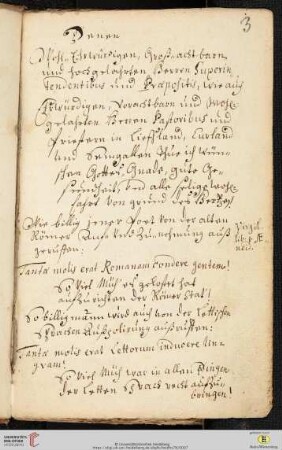 3
Denen
WolEhrwürdigen, Großachtbarn
und hochgelahrten Herren Superin-
tendentibus und Præpositis, wie auch
Ehrwürdigen, Vorachtbarn und Wol-
gelahrten Herren Pastoribus und
Priestern in Lieffland, Curland
und Semgallen
Gottes Gnade, gute Ge-
sundheit, und alle selige wol-
fahrt von grund des Hertzen!
Wie billig jener Poet von der alten
Römer und Zunehmung auß
geruffen:
Virgil.
lib. 1. Æ-
neid.
Tantæ molis erat Romanam condere gentem!
So viel Müh es gekostet hat
auffzurichten der Römer Stat!
So billig mann wird auch von der Lettischen
Sprachen außruffen:
Tantæ molis erat Lettorum inducere lin-
guam!
So viel Müh war in allen Dingen
der Letten Sprach recht auffzu-
bringen!
UNIVERSITÄTS-
BIBLIOTHEK
HEIDELBERG
© Universitätsbibliothek Heidelberg